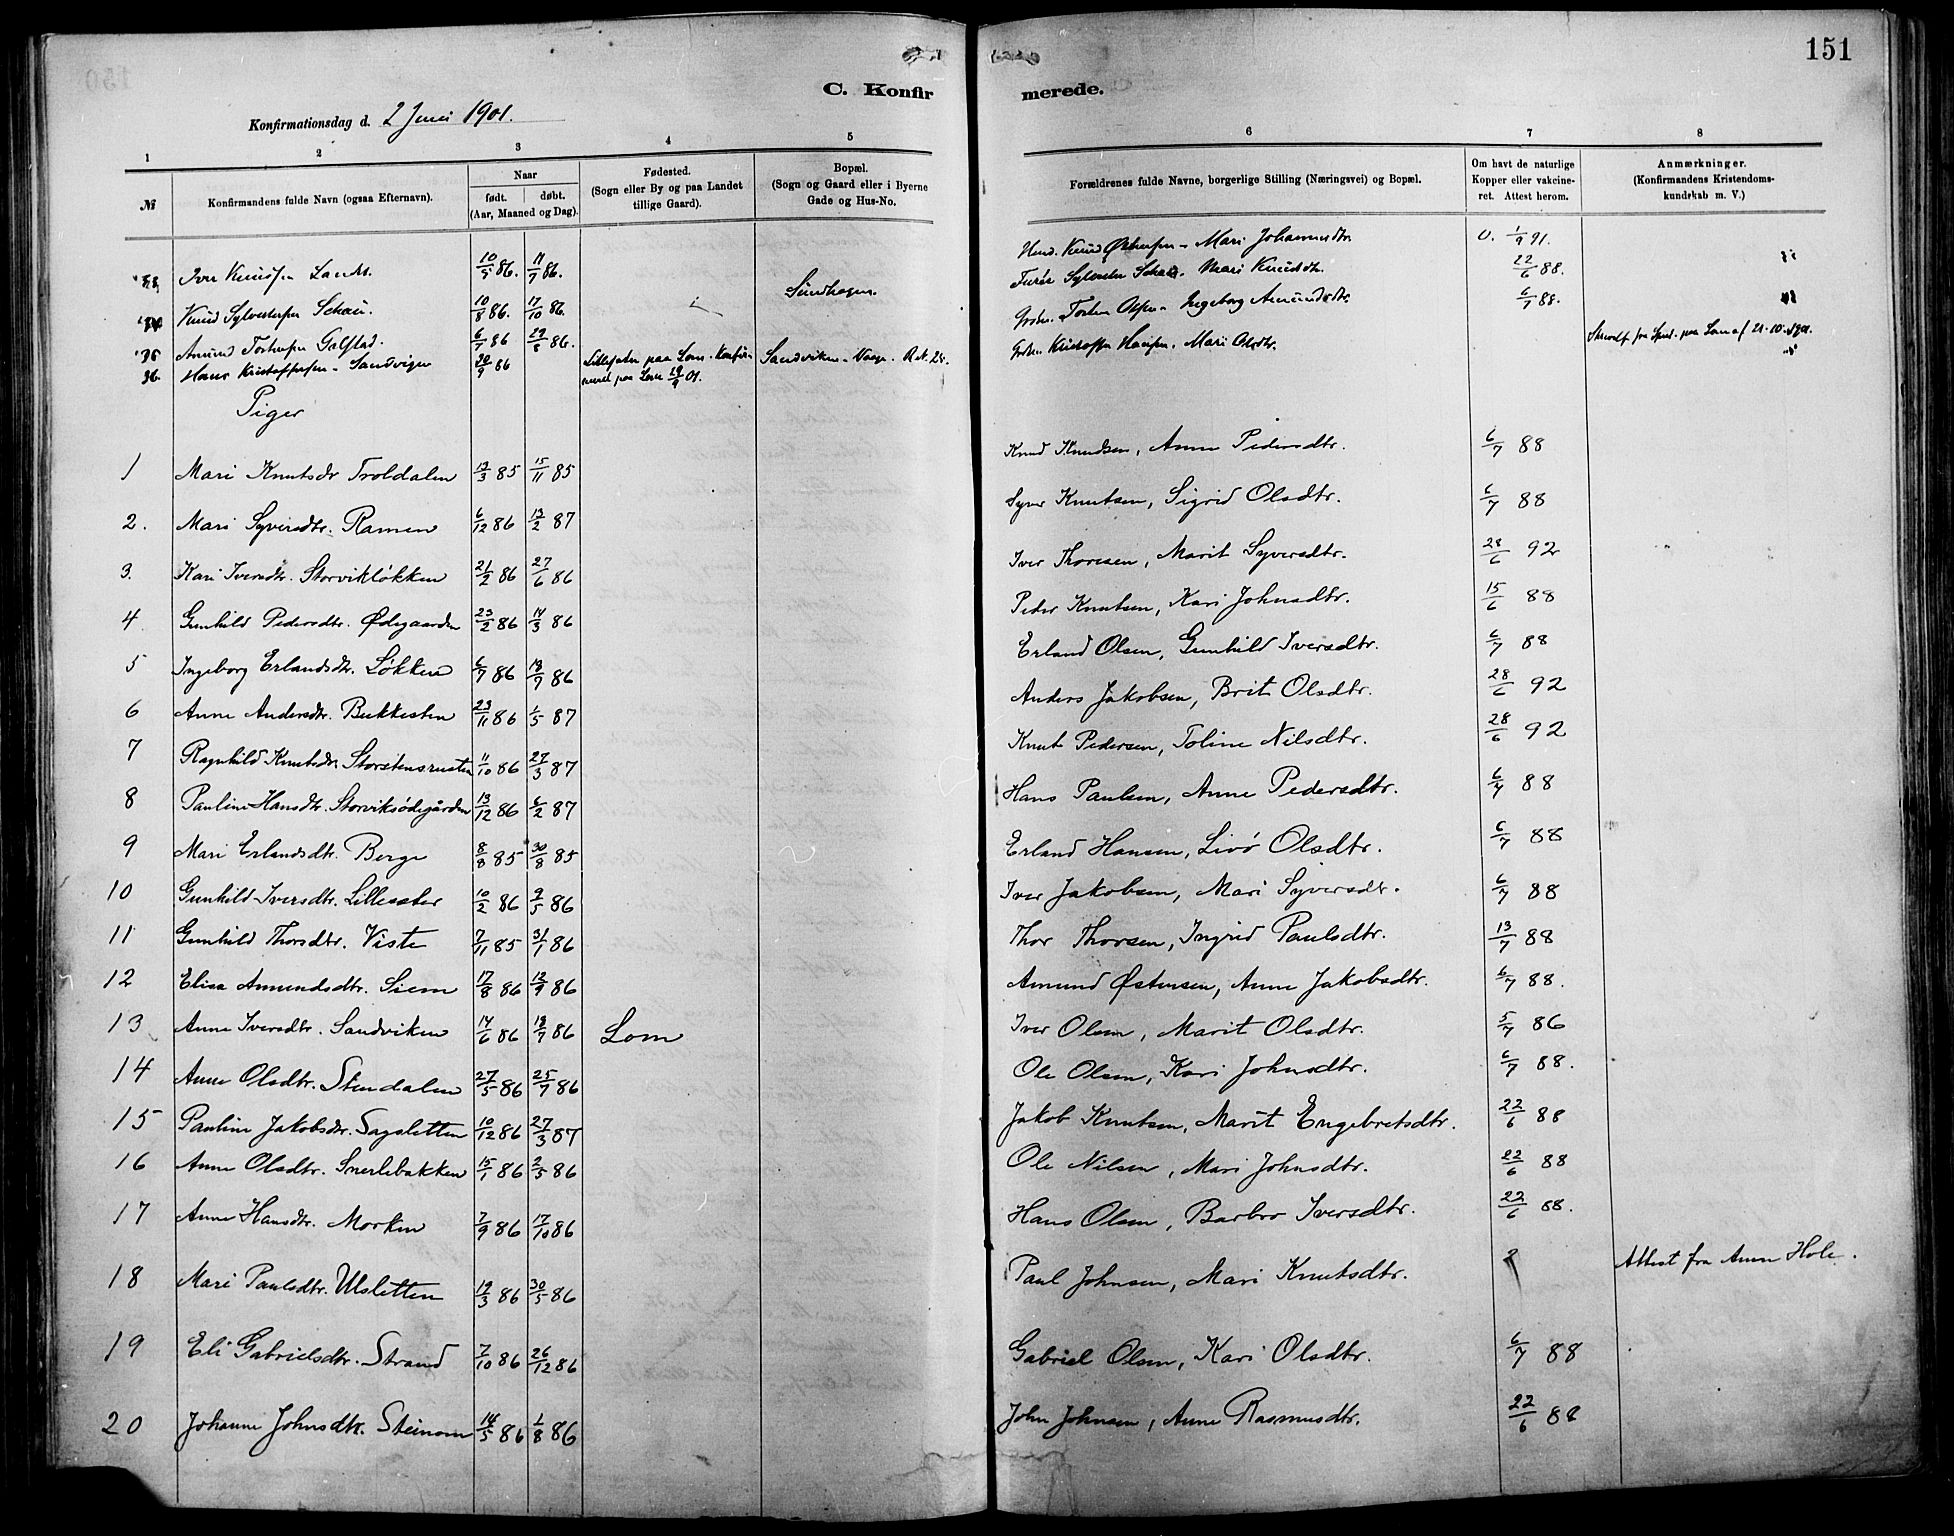 151
C. Konfirmerede.
Konfirmationsdag d. 2 Juni 1901.
1 2 3 4 5 6 7 8
№ Konfirmandens fulde Navn (ogsaa Efternavn). Naar født. døbt. (Aar, Maaned og Dag). Fødested. (Sogn eller By og paa Landet tillige Gaard). Bopæl. (Sogn og Gaard eller i Byerne Gade og Hus-No. Forældrenes fulde Navne, borgerlige Stilling (Næringsvei) og Bopæl. Om havt de naturlige Kopper eller vakcineret. Attest herom. Anmærkninger. (Konfirmandens Kristendomskundskab m. V.)
Iver 10/5 86. 11/7 86. Knud Mari Johannesdtr. 1/9 91.
Knud Sylvestersen Schau. 10/8 86. 17/10 86. Sundhagen. Sylvester Schau. Mari Knudsdtr. 22/6 88.
35 Amund Tostensen Galstad. 6/7 86 29/8 86. Tosten Olsen - Ingeborg Amundsdtr. 6/7 88.
36. Hans Kristoffersen - Sandvigen 30/9 86 paa Lom. Konfirmeret paa Lom 29/9 01. Sandviken - Vaage. Kristoffer Hansen. Mari Olsdtr. fra paa Lom af 21-10-1901.
Piger
1 Mari Knutsdr Troldalen 13/3 85 15/11 85 Knud Knudsen, Anne Pedersdtr. 6/7 88
2. Mari Syversdtr. Ramen 6/12 86 13/2 87 Syver Knutsen, Sigrid Olsdtr. 6/7 88
3. Kari Iversdtr. Storvikløkken 21/2 86 27/6 86 Iver Thoresen, Marit Syversdtr. 28/6 92
4. Gunhild Pedersdtr. Ødegaarden 23/2 86 14/3 86 Peder Knutsen, Kari Johnsdtr. 15/6 88
5 Ingeborg Erlandsdtr. Løkken 6/7 86 19/9 86 Erland Olsen, Gunhild Iversdtr. 6/7 88
6 Anne Andersdtr. Bukkesten 23/11 86 1/5 87 Anders Jakobsen, Brit Olsdtr. 28/6 92
7 Ragnhild Knutsdtr Storstensrusten 11/10 86 27/3 87 Knut Pedersen, Toline Nilsdtr. 28/6 92
8 Pauline Hansdtr. Storviksødegården 13/12 86 6/2 87 Hans Paulsen, Anne Pedersdtr. 6/7 88
9 Mari Erlandsdtr. Berge 8/8 85 30/8 85 Erland Hansen, Livø Olsdtr. 6/7 88
10 Gunhild Iversdtr. Lillesæter 10/2 86 2/5 86 Iver Jakobsen, Mari Syversdtr. 6/7 88
11 Gunhild Thorsdtr. Viste 7/11 85 31/1 86 Thor Thorsen, Ingrid Paulsdtr. 13/7 88
12 Elisa Amundsdtr. Siem 17/8 86 12/9 86 Amund Østensen, Anne Jakobsdtr. 6/7 88.
13 Anne Iversdtr. Sandviken 14/6 86 18/7 86 Lom Iver Olsen, Marit Olsdtr. 5/7 86
14 Anne Olsdtr. Stendalen 27/5 86 25/7 86 Ole Olsen, Kari Johnsdtr. 6/7 88.
15 Pauline Jakobsdtr. Sagsletten 10/12 86 27/3 87 Jakob Knutsen, Marit Engebretsdtr. 22/6 88
16 Anne Olsdtr. Snerlebakken 15/1 86 2/5 86 Ole Nilsen, Mari Johnsdtr. 22/6 88
17 Anne Hansdtr. Morken 7/9 86 17/10 86 Hans Olsen, Barbro Iversdtr. 22/6 88.
18 Mari Paulsdtr. Ulsletten 19/3 86 30/5 86 Paul Johnsen, Mari Knutsdtr. ? Attest fra Anne Hole.
19 Eli Gabrielsdtr. Strand 7/10 86 26/12 86 Gabriel Olsen, Kari Olsdtr. 6/7 88
20 Johanne Johnsdtr. Steinom 14/5 86 1/8 86 John Johnsen, Anne Rasmusdtr. 22/6 88